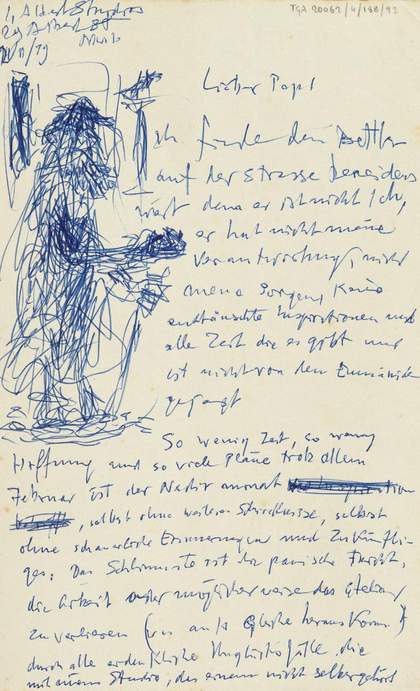 1, Albert Studios
29 Albert
/79
TGA 20062/4/188/92
Lieber Papi
Ich finde den Bettler
auf der Strasse beneidens
wert denn er ist nicht Ich,
er hat nicht meine
Verantwortung, nicht
meine Sorgen, keine
enttäuschte Inspirationen und
alle Zeit die es gibt und
ist nicht von den
gejagt
So wenig Zeit, so wenig
Hoffnung und so viele Pläne trotz allem
Februar ist der
, selbst ohne weitere, selbst
ohne schauerliche Erinnerungen und Zukünfti-
ges. Das Schlimmste ist die panische Furcht,
die Arbeit oder möglicherweise das
zu verlieren (was aufs Gleiche herauskommt)
durch alle erdenkliche Unglücksfälle, die
mit einem Studio, das einem nicht selber gehört